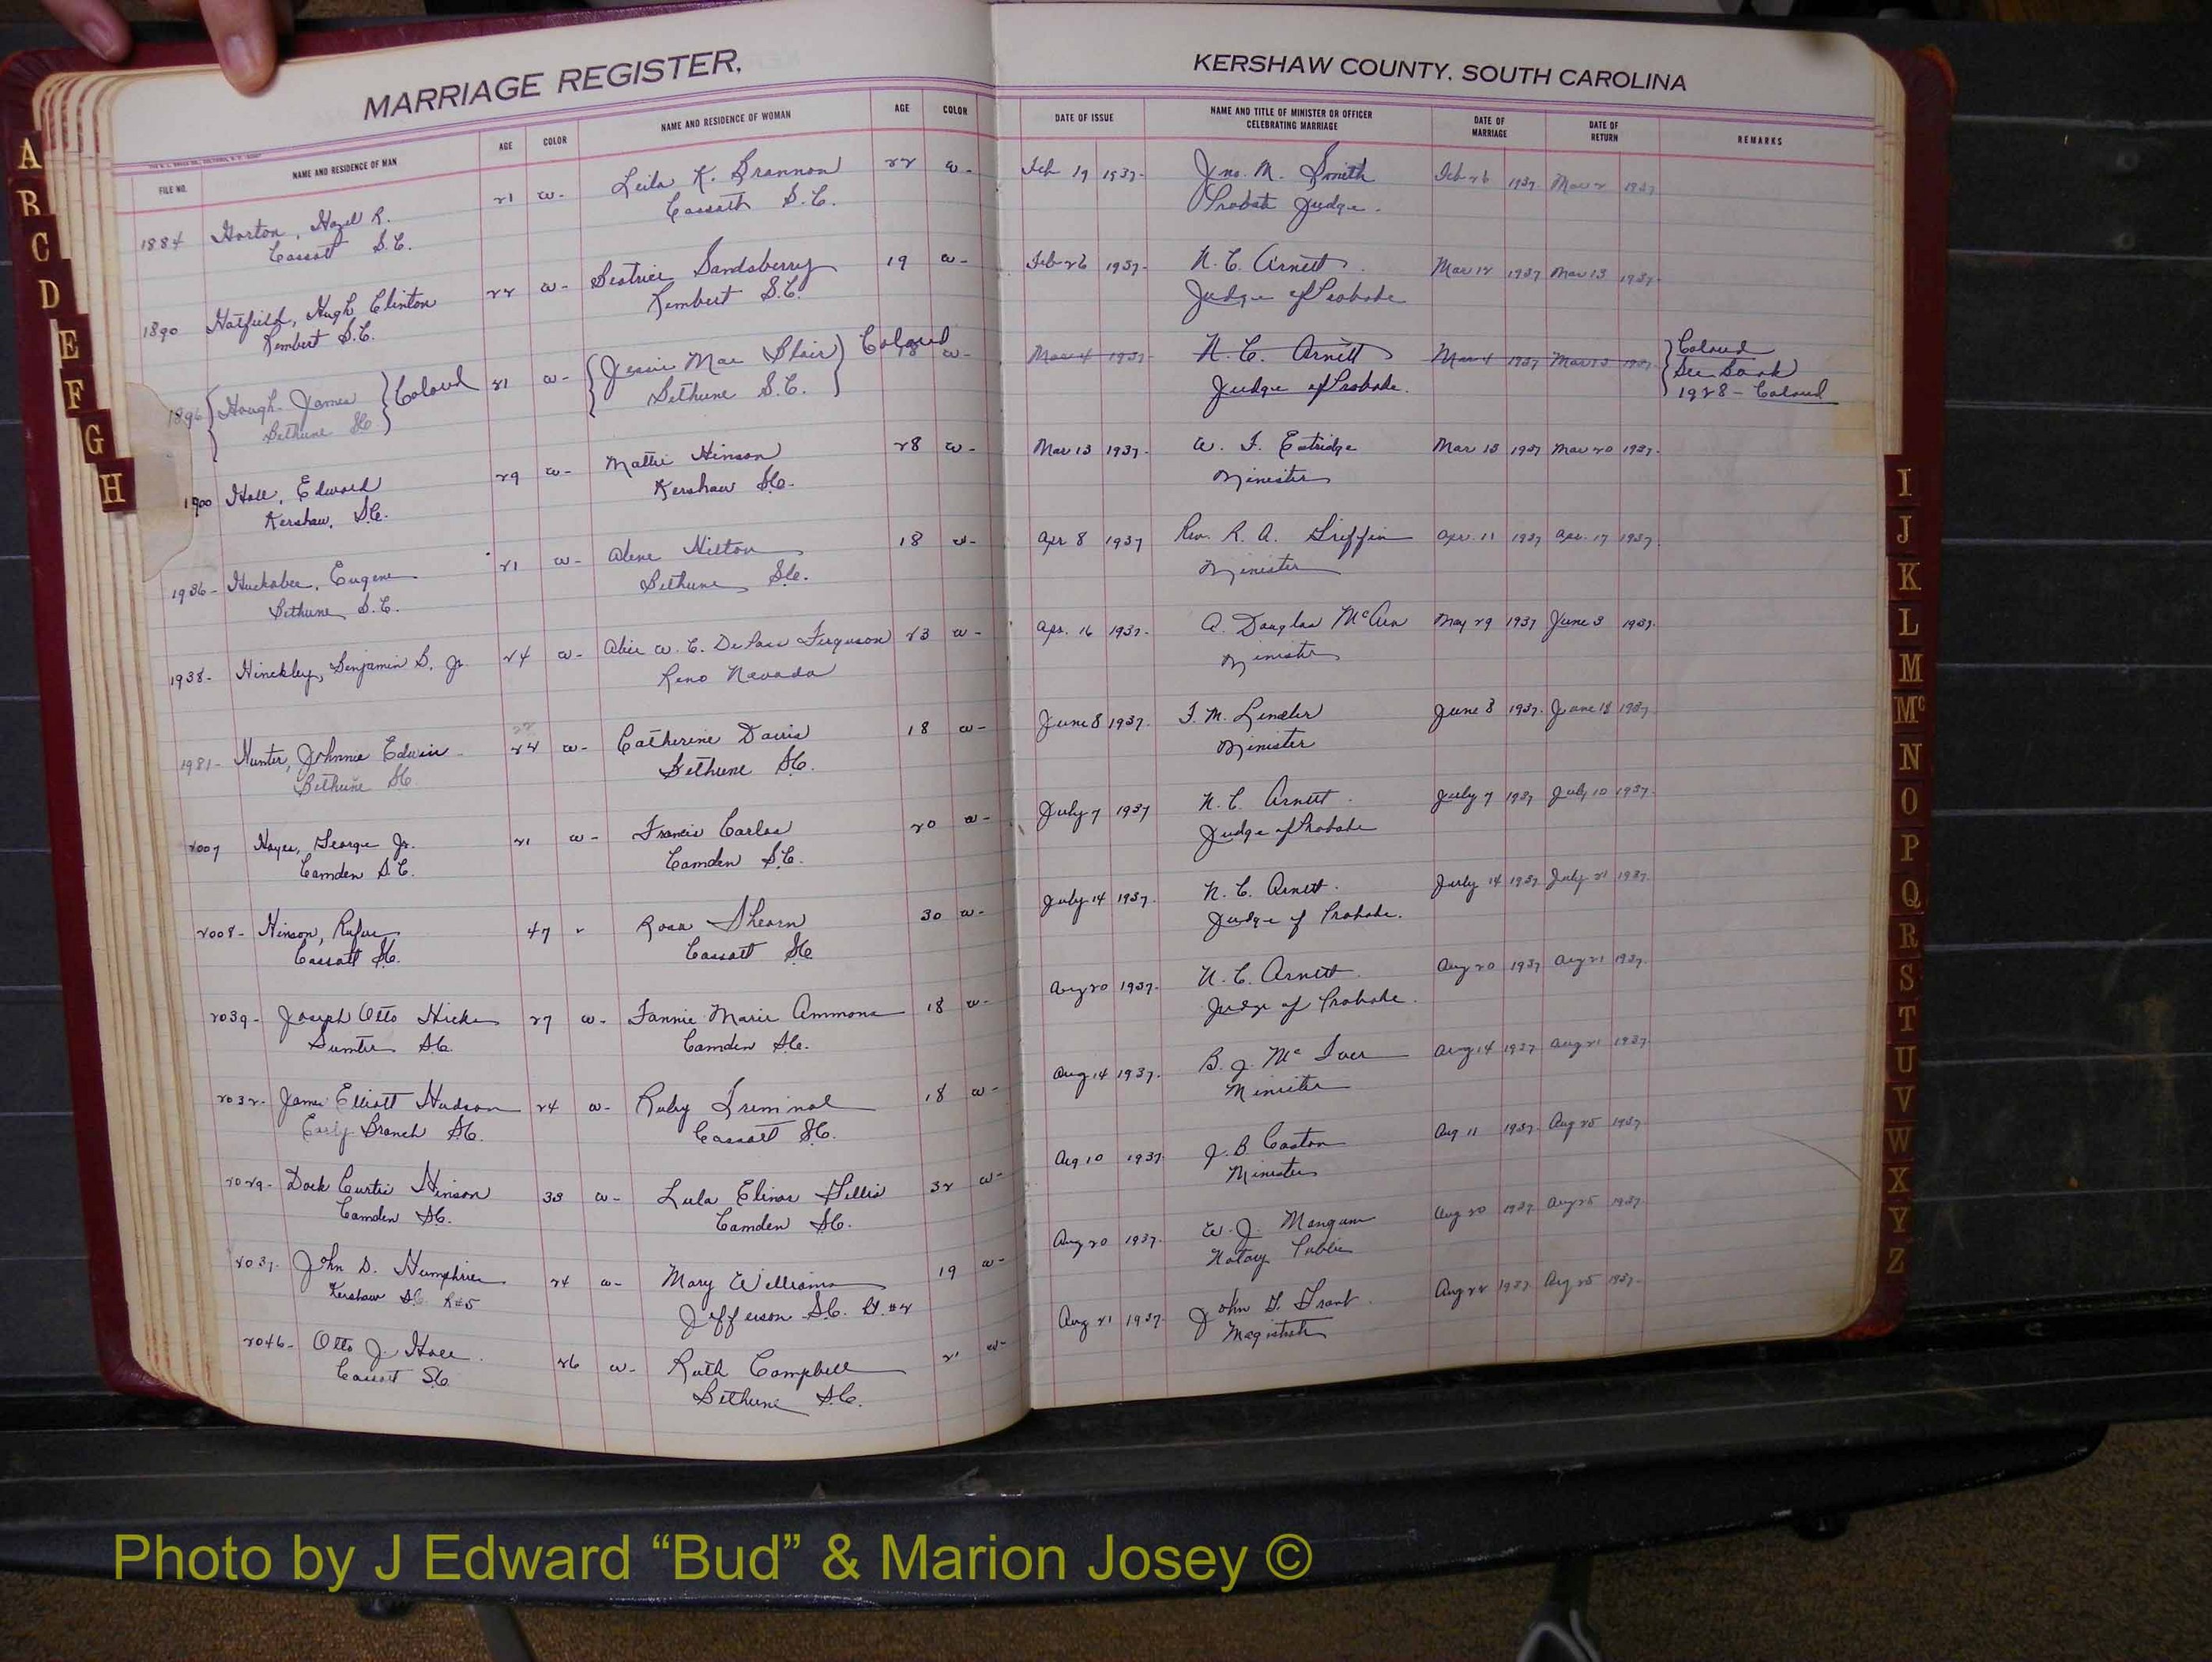 MARRIAGE REGISTER,
FILE NO. NAME AND RESIDENCE OF MAN AGE COLOR NAME AND RESIDENCE OF WOMAN AGE COLOR
1884 Horton, Hazel R. 21 w- Leila K. Brannon 22 w-
Cassatt S.C. Cassatt S.C.
1890 Hatfield, Hugh Clinton 22 w- Beatrice Sandsberry 19 w-
Rembert S.C. Rembert S.C.
1896 {Hough James} Colored 21 w- {Jessie Mae Blair} Colored 18 w-
Bethune SC Bethune S.C.
1900 Hall, Edward 29 w- Mattie Hinson 28 w-
Kershaw, S.C. Kershaw S.C.
1936- Huckabee, Eugene 21 w- Alene Hilton 18 w-
Bethune S.C. Bethune S.C.
1938- Hinckley, Benjamin B. Jr. 24 w- Alice W. C. Ferguson 23 w-
Reno Navada
1981- Hunter, Johnnie Edwin 24 w- Catherine Davis 18 w-
Bethune SC Bethune S.C.
2007 Hayes, George Jr. 21 w- Francis Carlos 20 w-
Camden S.C. Camden S.C.
2008- Hinson, Rufus 47 " Rosa Shearn 30 w-
Cassatt S.C. Cassatt S.C.
2039- Joseph Otto Hicks 27 w- Fannie Marie Ammons 18 w-
Sumter S.C. Camden S.C.
2032- James Elliott Hudson 24 w- Ruby Triminal 18 w-
Early Branch S.C. Cassatt S.C.
2029- Dock Curtis Hinson 33 w- Lula Elinor Gillis 32 w-
Camden S.C. Camden S.C.
2037- John D. Humphries 24 w- Mary Williams 19 w-
Kershaw S.C. R#5 Jefferson S.C. Rt. #2
2046- Otto J. Hall 26 w- Ruth Campbell 21 w-
Cassatt S.C. Bethune S.C.
KERSHAW COUNTY, SOUTH CAROLINA
DATE OF ISSUE NAME AND TITLE OF MINISTER OR OFFICER CELEBRATING MARRIAGE DATE OF MARRIAGE DATE OF RETURN REMARKS
Feb 19 1937- Jno. M. Smith Feb 26 1937 Mar 2 1937
Probate Judge.
Feb 26 1937- N. C. Arnett Mar 12 1937 Mar 13 1937-
Judge of Probate
Mar 4 1937- N. C. Arnett Mar 4 1937 Mar 13 1937- Colored
Judge of Probate. See Book
1928 - Colored
Mar 13 1937- W. F. Estridge Mar 13 1937 Mar 20 1937-
Minister
Apr 8 1937 Rev. R. A. Griffin Apr. 11 1937 Apr. 17 1937.
Minister
Apr. 16 1937- A. Douglas May 29 1937 June 3 1937.
Minister
June 8 1937- June 8 1937- June 18 1937
Minister
July 7 1937 N. C. Arnett July 7 1937 July 10 1937-
Judge of Probate
July 14 1937- N. C. Arnett July 14 1937- July 21 1937-
Judge of Probate.
Aug 20 1937- N. C. Arnett Aug 20 1937 Aug 21 1937-
Judge of Probate.
Aug 14 1937- B. J. McIver Aug 14 1937 Aug 21 1937-
Minister
Aug 10 1937- J. B. Caston Aug 11 1937- Aug 25 1937
Minister
Aug 20 1937- W. J. Mangum Aug 20 1937 Aug 25 1937-
Notary Public
Aug 21 1937- John G. Grant Aug 22 1937 Aug 25 1937-
Magistrate
A
B
C
D
E
F
G
H
I
J
K
L
M
Mc
N
O
P
Q
R
S
T
U
V
W
X
Y
Z
Photo by J Edward “Bud” & Marion Josey ©